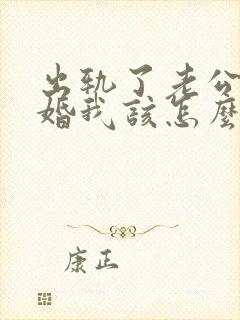 出轨了老公
婚我該怎麼
康正